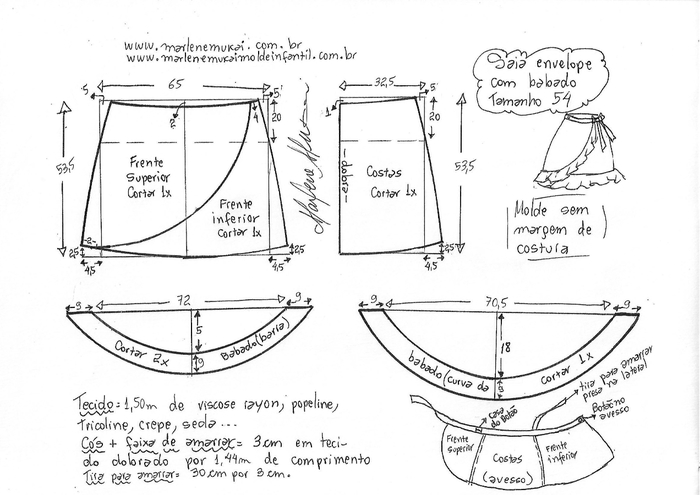 www.marlenemukai.com.br
www.marlenemukaimoldeinfantil.com.br
Saia envelope
com babado
Tamanho 54
65
5
5
2
4
20
53,5
Frente
Superior
Cortar 1x
Frente
inferior
Cortar 1x
2
2,5
4,5
4,5
2,5
Marlene Mukai
32,5
5
1
20
53,5
dobra
Costas
Cortar 1x
4,5
2,5
Molde sem
margem de
costura
9
72
9
5
9
Cortar 2x
Babado (barra)
9
70,5
9
18
9
babado (curva da
cortar 1x
Tecido = 1,50m de viscose rayon, popeline,
tricoline, crepe, seda...
Cós + faixa de amarrar = 3cm em teci-
do dobrado por 1,44m de comprimento
Tira para amarrar = 30cm por 3cm.
casa
do botão
tira para amarrar
presa na lateral
Botão no
avesso
Frente
superior
Costas
(avesso)
Frente
inferior